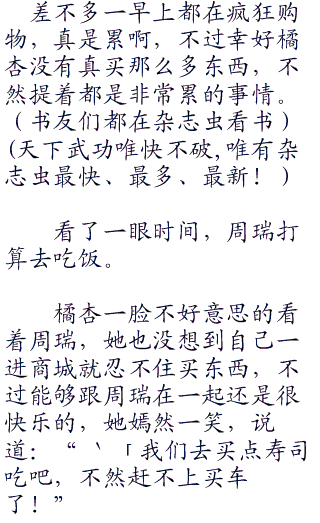 差不多一早上都在疯狂购
物，真是累啊，不过幸好橘
杏没有真买那么多东西，不
然提着都是非常累的事情。
（书友们都在杂志虫看书）
(天下武功唯快不破,唯有杂
志虫最快、最多、最新！）
看了一眼时间，周瑞打
算去吃饭。
橘杏一脸不好意思的看
着周瑞，她也没想到自己一
进商城就忍不住买东西，不
过能够跟周瑞在一起还是很
快乐的，她嫣然一笑，说
道：“‵「我们去买点寿司
吃吧，不然赶不上买车
了！”